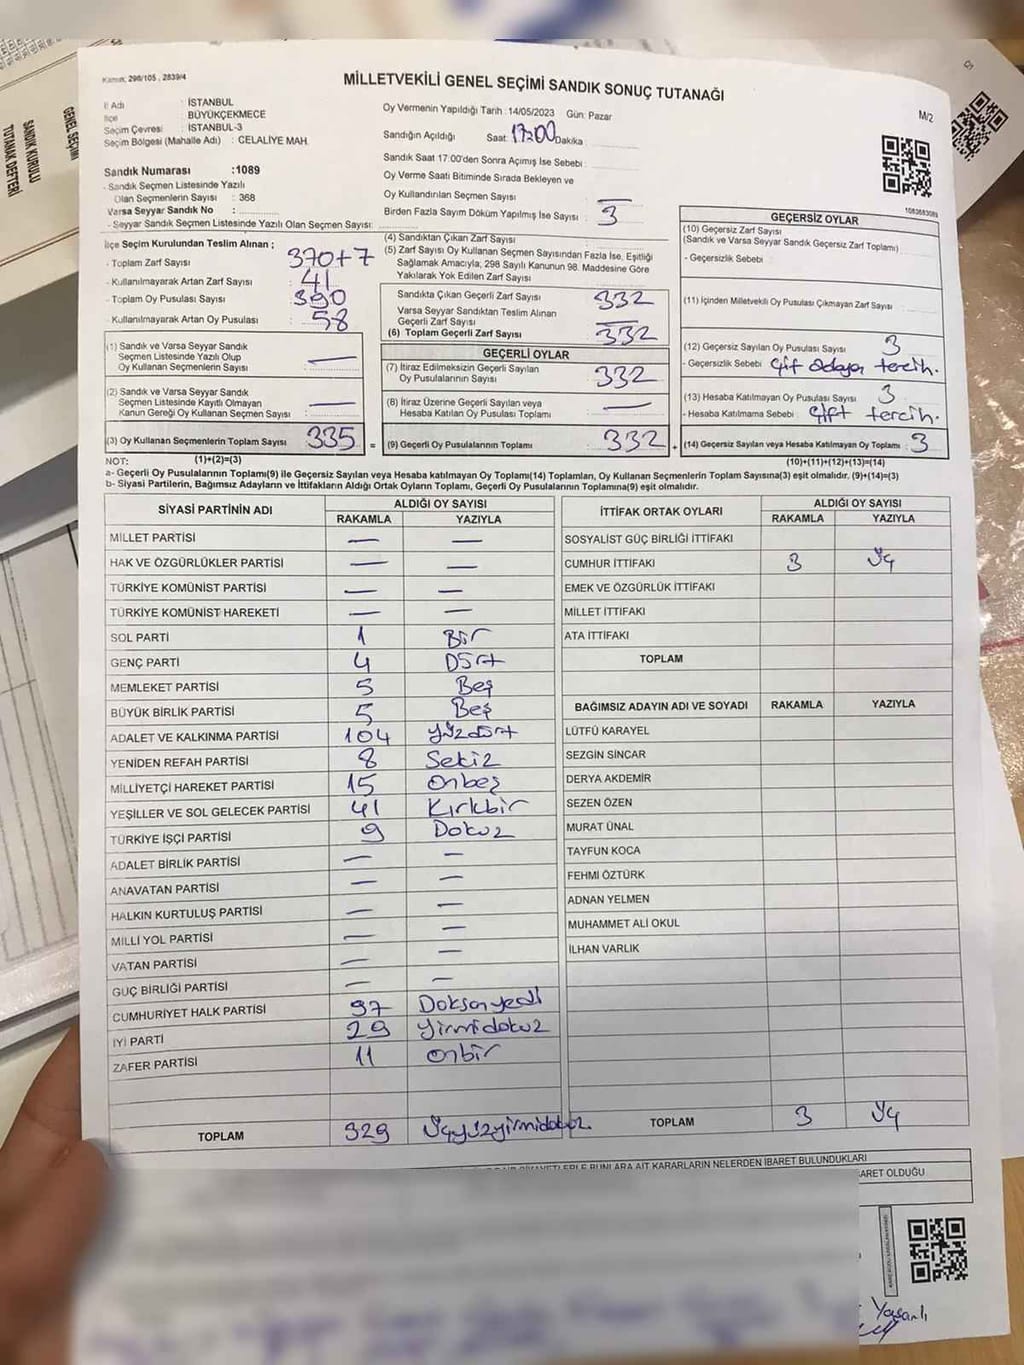 SANDIK KURULU
TUTANAK DEFTERİ
Kanun: 298/105 , 2839/4
MİLLETVEKİLİ GENEL SEÇİMİ SANDIK SONUÇ TUTANAĞI
M/2
İl Adı : İSTANBUL
İlçe : BÜYÜKÇEKMECE
Seçim Çevresi : İSTANBUL-3
Seçim Bölgesi (Mahalle Adı) : CELALİYE MAH.
Oy Vermenin Yapıldığı Tarih : 14/05/2023 Gün: Pazar
Sandığın Açıldığı Saat: 17:00 Dakika
Sandık Saat 17:00'den Sonra Açılmış İse Sebebi :
Oy Verme Saati Bitiminde Sırada Bekleyen ve
Oy Kullandırılan Seçmen Sayısı : —
Birden Fazla Sayım Döküm Yapılmış İse Sayısı : 3
Sandık Numarası :1089
- Sandık Seçmen Listesinde Yazılı
Olan Seçmenlerin Sayısı : 368
Varsa Seyyar Sandık No :
- Seyyar Sandık Seçmen Listesinde Yazılı Olan Seçmen Sayısı:
İlçe Seçim Kurulundan Teslim Alınan ;
- Toplam Zarf Sayısı : 370+7
- Kullanılmayarak Artan Zarf Sayısı : 41
- Toplam Oy Pusulası Sayısı : 390
- Kullanılmayarak Artan Oy Pusulası : 58
(1) Sandık ve Varsa Seyyar Sandık
Seçmen Listesinde Yazılı Olup
Oy Kullanan Seçmenlerin Sayısı : —
(2) Sandık ve Varsa Seyyar Sandık
Seçmen Listesinde Kayıtlı Olmayan
Kanun Gereği Oy Kullanan Seçmen Sayısı : —
(3) Oy Kullanan Seçmenlerin Toplam Sayısı : 335
(1)+(2)=(3)
(4) Sandıktan Çıkan Zarf Sayısı :
(5) Zarf Sayısı Oy Kullanan Seçmen Sayısından Fazla İse, Eşitliği
Sağlamak Amacıyla, 298 Sayılı Kanunun 98. Maddesine Göre
Yakılarak Yok Edilen Zarf Sayısı :
Sandıkta Çıkan Geçerli Zarf Sayısı : 332
Varsa Seyyar Sandıktan Teslim Alınan
Geçerli Zarf Sayısı : —
(6) Toplam Geçerli Zarf Sayısı : 332
GEÇERLİ OYLAR
(7) İtiraz Edilmeksizin Geçerli Sayılan
Oy Pusulalarının Sayısı : 332
(8) İtiraz Üzerine Geçerli Sayılan veya
Hesaba Katılan Oy Pusulası Toplamı : —
= (9) Geçerli Oy Pusulalarının Toplamı : 332 +
1083683089
GEÇERSİZ OYLAR
(10) Geçersiz Zarf Sayısı
(Sandık ve Varsa Seyyar Sandık Geçersiz Zarf Toplamı)
- Geçersizlik Sebebi :
(11) İçinden Milletvekili Oy Pusulası Çıkmayan Zarf Sayısı :
(12) Geçersiz Sayılan Oy Pusulası Sayısı : 3
- Geçersizlik Sebebi : Çift adaya tercih.
(13) Hesaba Katılmayan Oy Pusulası Sayısı : 3
- Hesaba Katılmama Sebebi : Çift tercih.
(14) Geçersiz Sayılan veya Hesaba Katılmayan Oy Toplamı : 3
(10)+(11)+(12)+(13)=(14)
NOT:
a- Geçerli Oy Pusulalarının Toplamı(9) ile Geçersiz Sayılan veya Hesaba katılmayan Oy Toplamı(14) Toplamları, Oy Kullanan Seçmenlerin Toplam Sayısına(3) eşit olmalıdır. (9)+(14)=(3)
b- Siyasi Partilerin, Bağımsız Adayların ve İttifakların Aldığı Ortak Oyların Toplamı, Geçerli Oy Pusulalarının Toplamına(9) eşit olmalıdır.
SİYASİ PARTİNİN ADI ALDIĞI OY SAYISI
RAKAMLA YAZIYLA
MİLLET PARTİSİ — —
HAK VE ÖZGÜRLÜKLER PARTİSİ — —
TÜRKİYE KOMÜNİST PARTİSİ — —
TÜRKİYE KOMÜNİST HAREKETİ — —
SOL PARTİ 1 Bir
GENÇ PARTİ 4 Dört
MEMLEKET PARTİSİ 5 Beş
BÜYÜK BİRLİK PARTİSİ 5 Beş
ADALET VE KALKINMA PARTİSİ 104 Yüzdört
YENİDEN REFAH PARTİSİ 8 Sekiz
MİLLİYETÇİ HAREKET PARTİSİ 15 Onbeş
YEŞİLLER VE SOL GELECEK PARTİSİ 41 Kırkbir
TÜRKİYE İŞÇİ PARTİSİ 9 Dokuz
ADALET BİRLİK PARTİSİ — —
ANAVATAN PARTİSİ — —
HALKIN KURTULUŞ PARTİSİ — —
MİLLİ YOL PARTİSİ — —
VATAN PARTİSİ — —
GÜÇ BİRLİĞİ PARTİSİ — —
CUMHURİYET HALK PARTİSİ 97 Doksanyedi
İYİ PARTİ 29 Yirmidokuz
ZAFER PARTİSİ 11 Onbir
TOPLAM 329 Üçyüzyirmidokuz.
İTTİFAK ORTAK OYLARI ALDIĞI OY SAYISI
RAKAMLA YAZIYLA
SOSYALİST GÜÇ BİRLİĞİ İTTİFAKI
CUMHUR İTTİFAKI 3 Üç
EMEK VE ÖZGÜRLÜK İTTİFAKI
MİLLET İTTİFAKI
ATA İTTİFAKI
TOPLAM
BAĞIMSIZ ADAYIN ADI VE SOYADI RAKAMLA YAZIYLA
LÜTFÜ KARAYEL
SEZGİN SİNCAR
DERYA AKDEMİR
SEZEN ÖZEN
MURAT ÜNAL
TAYFUN KOCA
FEHMİ ÖZTÜRK
ADNAN YELMEN
MUHAMMET ALİ OKUL
İLHAN VARLIK
TOPLAM 3 Üç
BUNLARA AİT KARARLARIN NELERDEN İBARET BULUNDUKLARI
OLDUĞU
Yaşarlı